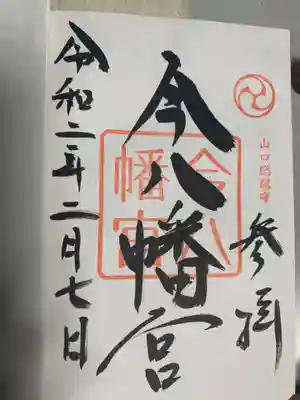 山口
参拝
今八幡宮
今八
幡宮
令和二年二月七日